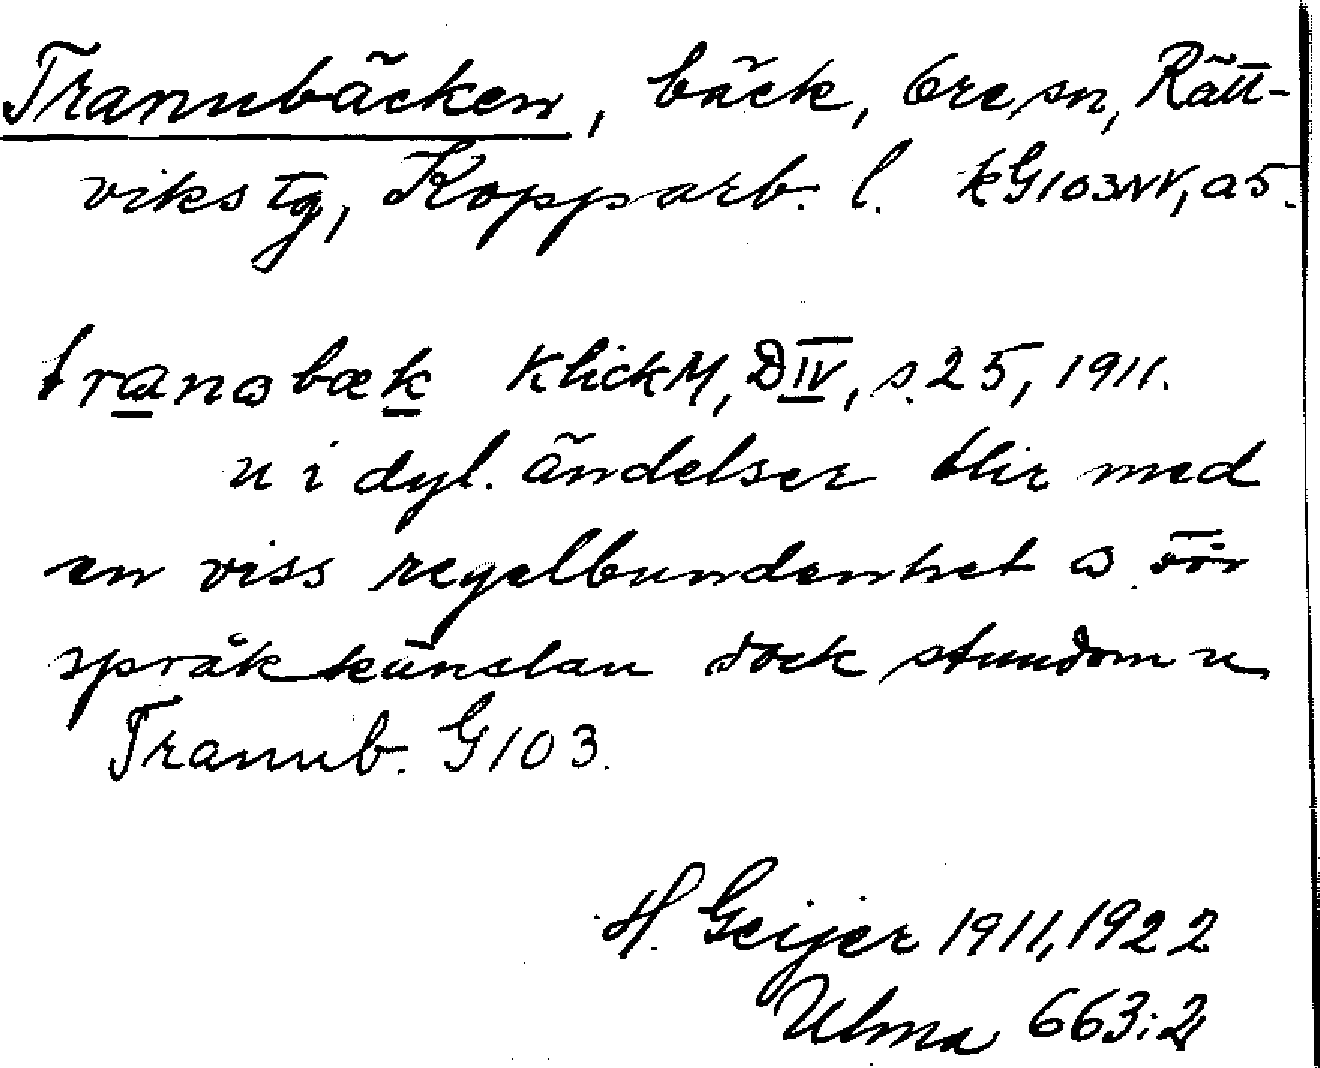 Trannubäcken, bäck, Ore sn, Rätt-
viks tg, Kopparb. l. kG103NV, a5.
tranɷbæk KlickM, DIV, s. 25, 1911.
u i dyl. ändelser blir med
en viss regelbundenhet ɷ för
språkkänslan dock stundom u
Trannub. G103.
H. Geijer 1911, 1922
Ulma 663:2